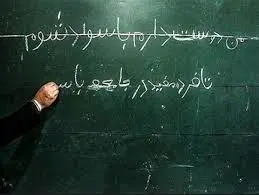 من دوست دارم با سواد شوم
تا فرد مفید در جامعه باشم